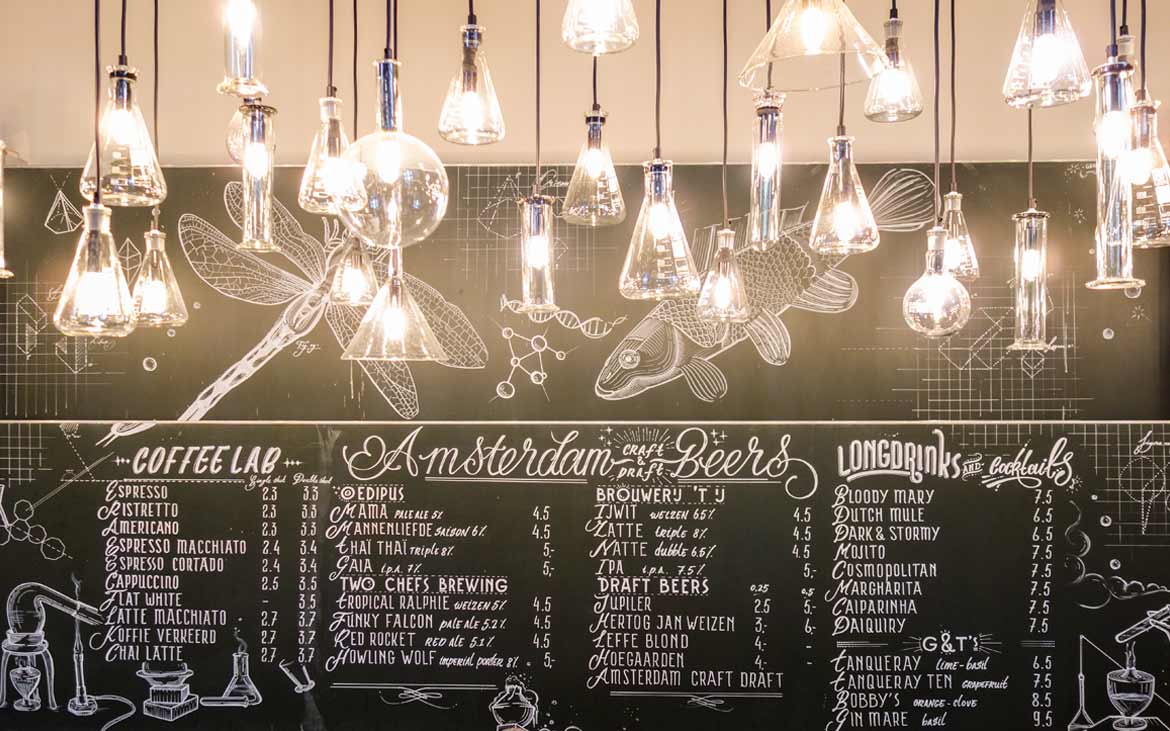 Fig. 9
COFFEE LAB
Single shot Double shot
ESPRESSO 2.3 3.3
RISTRETTO 2.3 3.3
AMERICANO 2.3 3.3
ESPRESSO MACCHIATO 2.4 3.4
ESPRESSO CORTADO 2.4 3.4
CAPPUCCINO 2.5 3.5
FLAT WHITE - 3.5
LATTE MACCHIATO 2.7 3.7
KOFFIE VERKEERD 2.7 3.7
CHAI LATTE 2.7 3.7
Amsterdam CRAFT & DRAFT Beers
OEDIPUS
MAMA PALE ALE 5% 4.5
MANNENLIEFDE SAISON 6% 4.5
THAI THAI triple 8% 5,-
GAIA i.p.a. 7% 5,-
TWO CHEFS BREWING
TROPICAL RALPHIE WEIZEN 5% 4.5
FUNKY FALCON pale ale 5.2% 4.5
RED ROCKET RED ALE 5.1% 4.5
HOWLING WOLF imperial porter 8% 5,-
BROUWERIJ 'T IJ
IJWIT WEIZEN 6.5% 4.5
ZATTE triple 8% 4.5
NATTE dubble 6.5% 4.5
IPA i.p.a. 7.5% 5,-
DRAFT BEERS 0,25 0,5
JUPILER 2.5 5,-
HERTOG JAN WEIZEN 3,- 6,-
LEFFE BLOND 4,- -
HOEGAARDEN 4,- -
AMSTERDAM CRAFT DRAFT
LONGDRINKS AND Cocktails
BLOODY MARY 7.5
DUTCH MULE 6.5
DARK & STORMY 6.5
MOJITO 7.5
COSMOPOLITAN 7.5
MARGHARITA 7.5
CAIPARINHA 7.5
DAIQUIRY 7.5
G&T's
TANQUERAY lime-basil 6.5
TANQUERAY TEN GRAPEFRUIT 7.5
BOBBY'S ORANGE-clove 8.5
GIN MARE basil 9.5